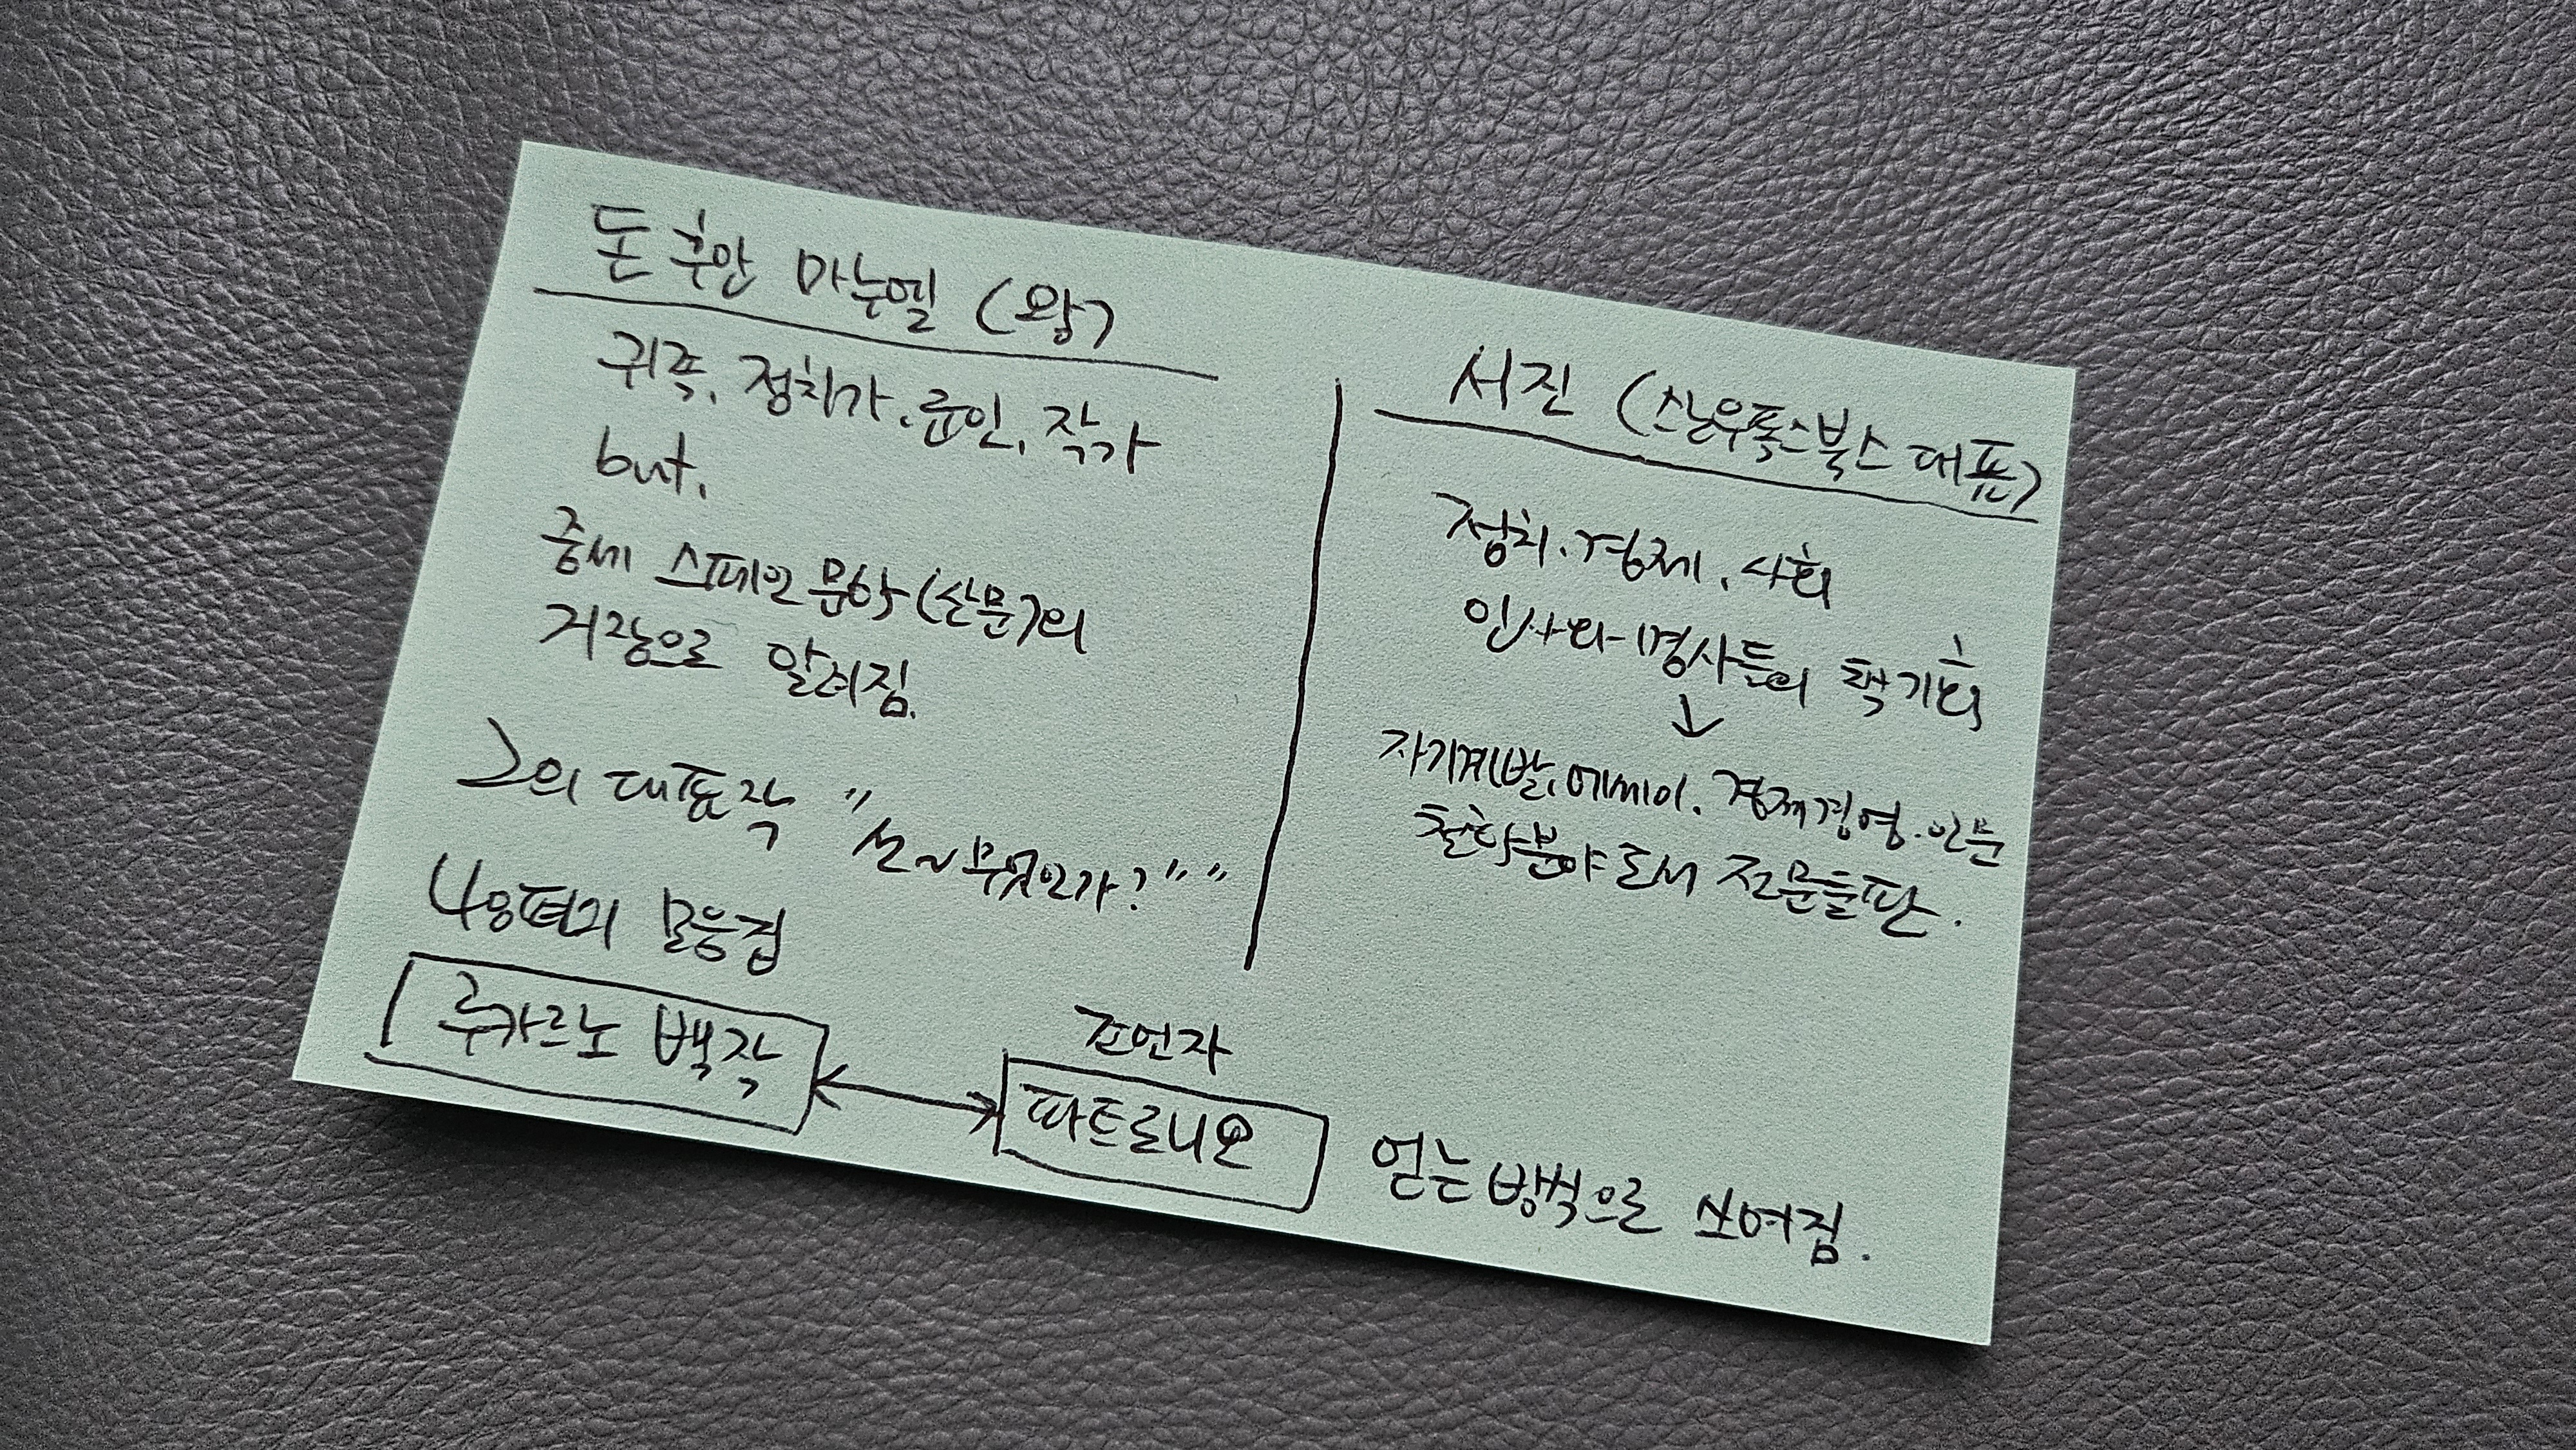 돈 후안 마누엘 (왕)
귀족, 정치가, 군인, 작가
but,
중세 스페인 문학(산문)의
거장으로 알려짐.
그의 대표작 "선~무엇인가?""
48편의 모음집
루카르노 백작
조언자
파트로니오
얻는 방식으로 쓰여짐.
서진 (스노우폭스북스 대표)
정치, 경제, 사회
인사와 명사들의 책 기획
↓
자기계발, 에세이, 경제경영·인문
철학분야 도서 전문출판.